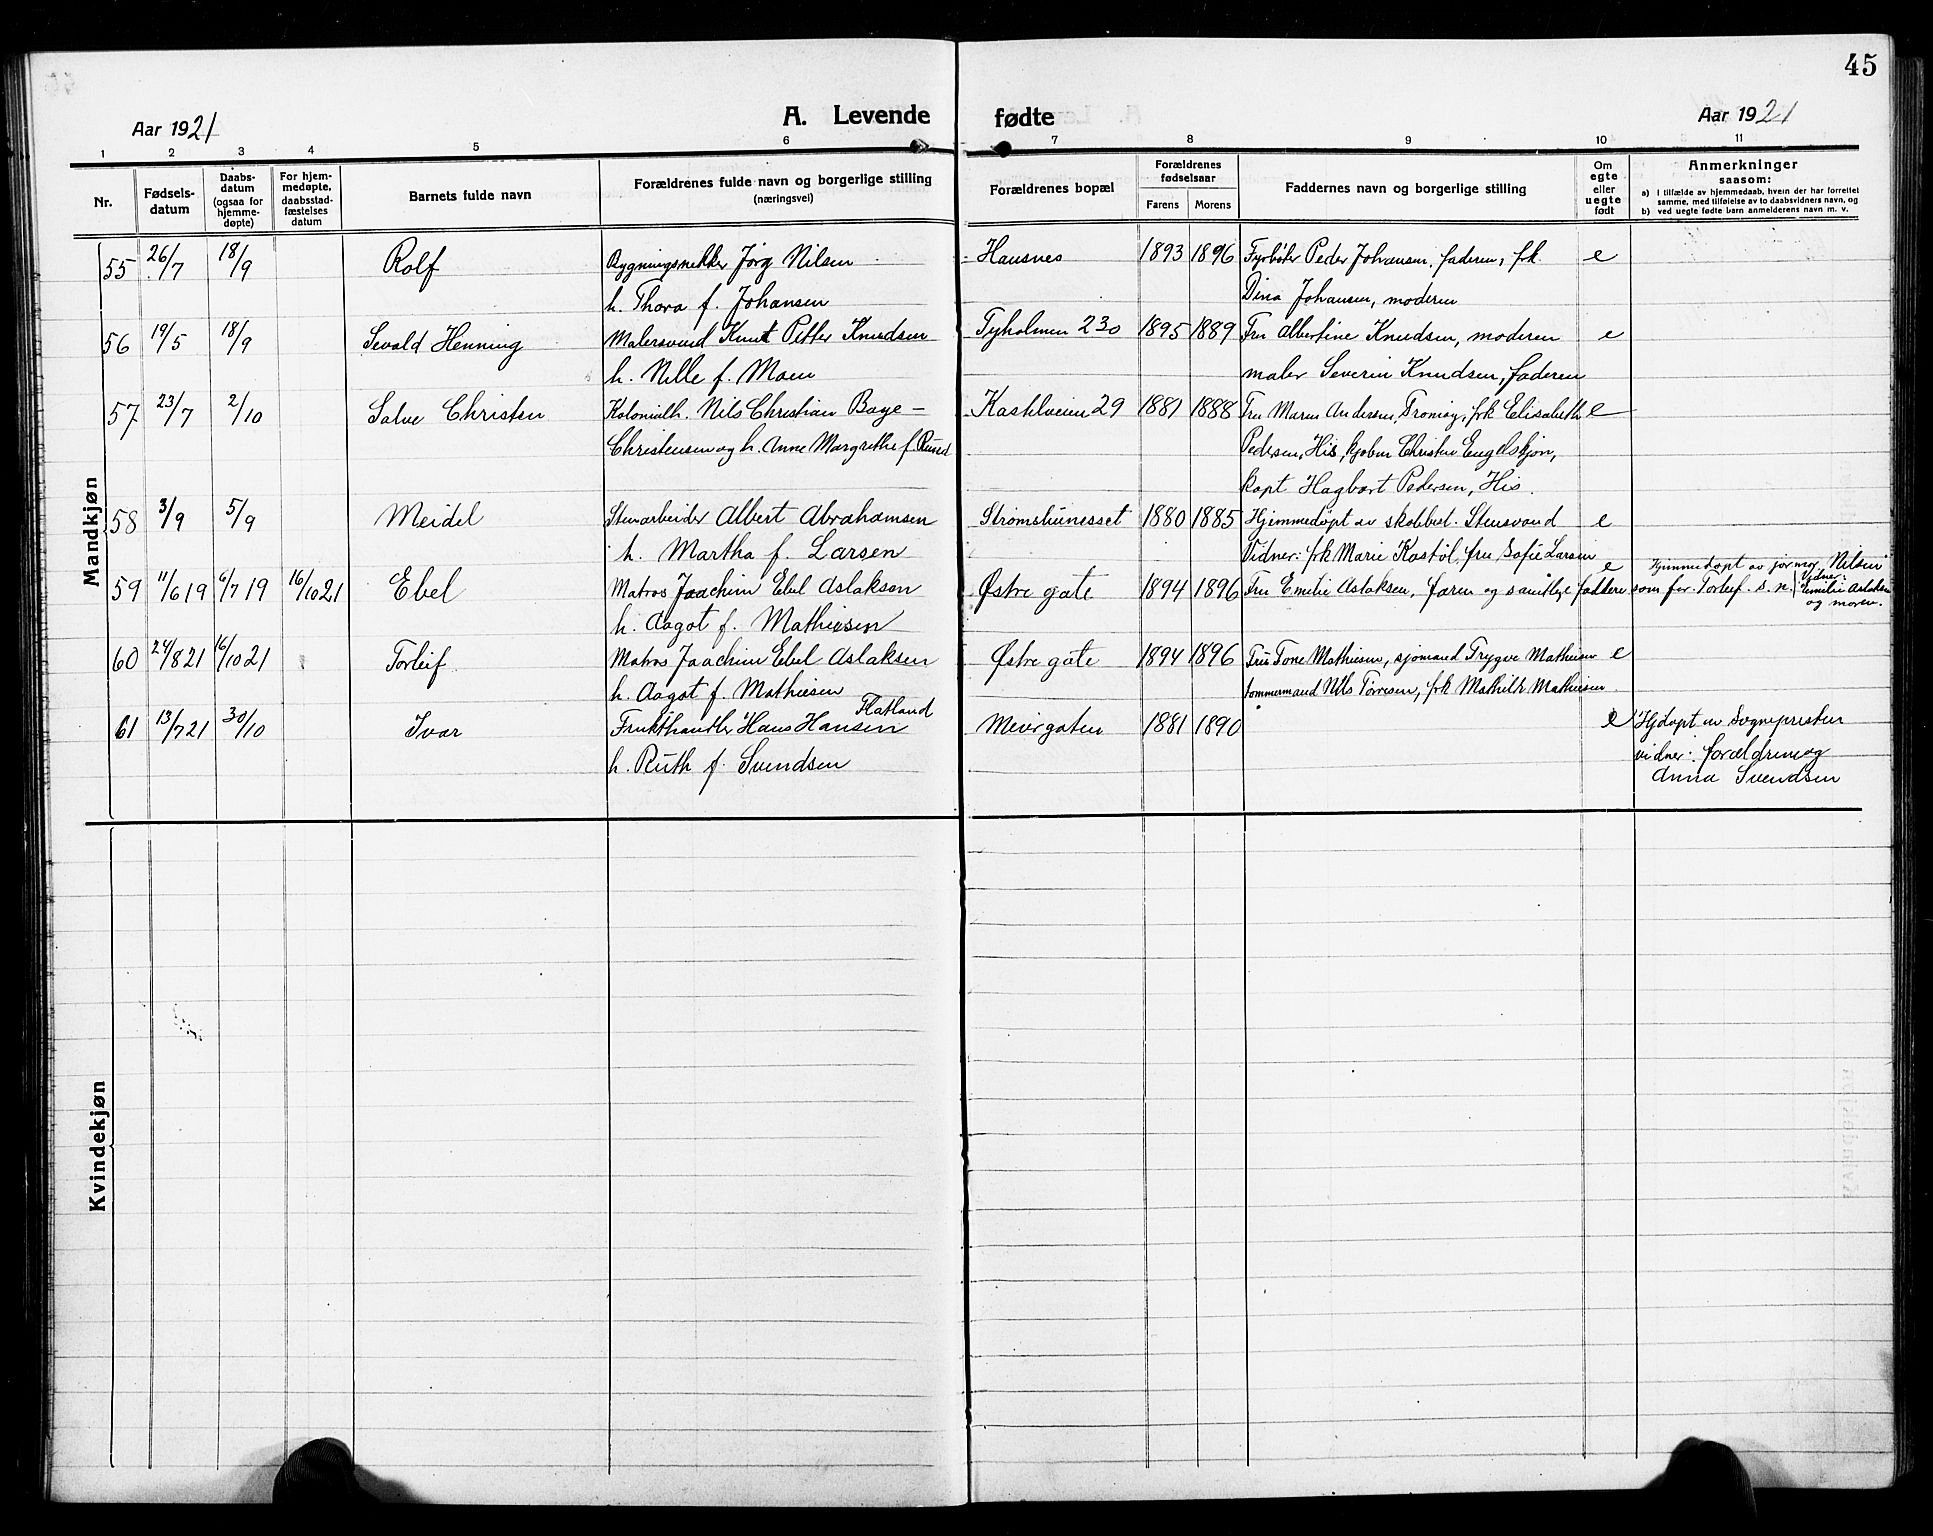 45
Aar 1921
A. Levende fødte
Aar 1921
1 2 3 4 5 6 7 8 9 10 11
Nr.
Fødsels-
datum
Daabs-
datum
(ogsaa for
hjemme-
døpte)
For hjem-
medøpte,
daabsstad-
fæstelses
datum
Barnets fulde navn
Forældrenes fulde navn og borgerlige stilling
(næringsvei)
Forældrenes bopæl
Forældrenes
fødselsaar
Farens Morens
Faddernes navn og borgerlige stilling
Om
egte
eller
uegte
født
Anmerkninger
saasom:
a) i tilfælde av hjemmedaab, hvem der har forrettet
samme, med tilføielse av to daabsvidners navn, og
b) ved uegte fødte barn anmelderens navn m. v.
Mandkjøn
55 26/7 18/9 Rolf Bygningsnekker Jørg Nilsen Hausnes 1893 1896 Fyrbøter Peder Johansen, faderen, frk. e
h. Thora f. Johansen Dina Johansen, moderen
56 19/5 18/9 Sevald Henning Malersvend Knut Petter Knudsen Tyholmen 230 1895 1889 Fru Albertine Knudsen, moderen e
h. Nille f. Moen maler Severin Knudsen, faderen
57 23/7 2/10 Salve Christen Kolonialh. Nils Christian Boye- Kastelveien 29 1881 1888 Fru Maren Andersen, Tromøy, frk Elisabeth e
Christensen og h. Anne Margrethe f. Pedersen, His, kjøbm Christen Engelskjøn,
kapt Hagbart Pedersen, His.
58 3/9 5/9 Meidel Stenarbeider Albert Abrahamsen Strømsbunesset 1880 1885 Hjemmedøpt av skolebest. Stensvand e
h. Martha f. Larsen Vidner: frk Marie Kastøl, fru Sofie Larsen
59 11/6 19 6/7 19 16/10 21 Ebel Matros Joachim Ebel Aslaksen Østre gate 1894 1896 Fru Emilie Aslaksen, faren og samtlige faddere e Hjemmedøpt av jormor Nilsen
som for Torleif. s. n. Vidner: Emilie Aslaksen
og moren.
h. Aagot f. Mathiesen
60 24/8 21 16/10 21 Torleif Matros Joachim Ebel Aslaksen Østre gate 1894 1896 Fru Tone Mathiesen, sjømand Trygve Mathiesen e
h. Aagot f. Mathiesen tømmermand Nils Tørresen, frk Mathilde Mathiesen
61 13/7 21 30/10 Ivar Frukthandler Hans Hansen Flatland Meiergaten 1881 1890 e Hjdøpt av Sognepresten
h. Ruth f. Svendsen vidner: forældrene og
Anna Svendsen
Kvindekjøn